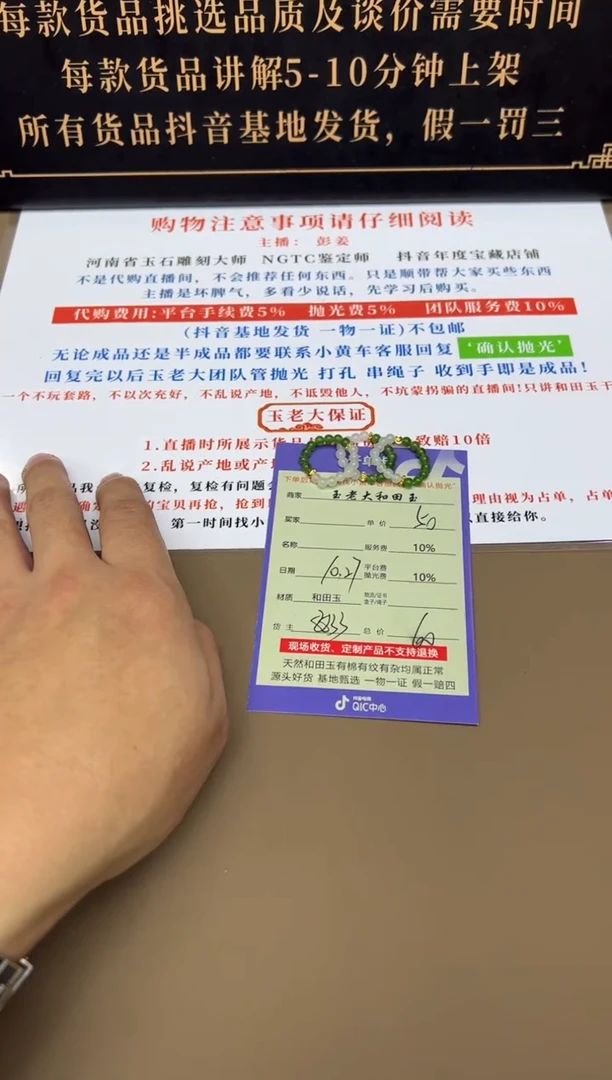 每款货品挑选品质及谈价需要时间
每款货品讲解5-10分钟上架
所有货品抖音基地发货，假一罚三
购物注意事项请仔细阅读
主播： 彭姜
河南省玉石雕刻大师 NGTC鉴定师 抖音年度宝藏店铺
不是代购直播间，不会推荐任何东西。只是顺带帮大家买些东西
主播是坏脾气，多看少说话，先学习后购买。
代购费用:平台手续费5% 抛光费5% 团队服务费10%
(抖音基地发货 一物一证)不包邮
无论成品还是半成品都要联系小黄车客服回复 ‘确认抛光’
回复完以后玉老大团队管抛光 打孔 串绳子 收到手即是成品!
一个不玩套路，不以次充好，不乱说产地，不诋毁他人，不坑蒙拐骗的直播间!只讲和田玉干
玉老大保证
1.直播时所展示货品 致赔10倍
2.乱说产地或产
品我 复检，复检有问题
的宝贝再抢，抢到 理由视为占单，占单
第一时间找小 以直接给你。
商家 玉老大和田玉
买家 单价 50
名称 服务费 10%
日期 10.27 平台费 抛光费 10%
材质 和田玉 物流/证书 盒子/绳子
货主 总价
现场收货、定制产品不支持退换
天然和田玉有棉有纹有杂均属正常
源头好货 基地甄选 一物一证 假一赔四
抖音电商
QIC中心